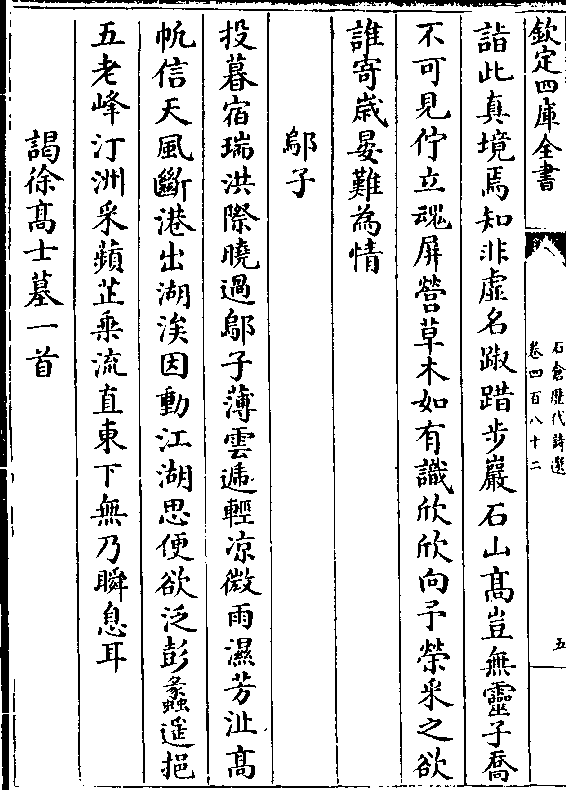 欽定四庫全書
石倉歴代詩選
卷四百八十二
五
詣此真境焉知非虛名踧踖步巖石山髙豈無靈子喬
不可見佇立魂屏營草木如有識欣欣向予榮采之欲
誰寄歳晏難為情
鄔子
投暮宿瑞洪際曉過鄔子薄雲逓輕凉微雨濕芳沚髙
帆信天風斷港出湖涘因動江湖思便欲泛彭蠡遥挹
五老峰汀洲采蘋芷乗流直東下無乃瞬息耳
謁徐髙士墓一首